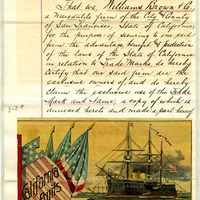 That we, Williams Brown & Co.
a Mercantile firm of the City & County
of San Francisco, State of California
for the purpose of securing to our said
firm the advantage, benefit & protection
of the laws of the State of California
in relation to Trade Marks do hereby
Certify that our said firm are the
exclusive owners of, and do hereby
claim the exclusive use of the Trade
Mark and Name, a copy of which is
annexed hereto and made a part hereof
California